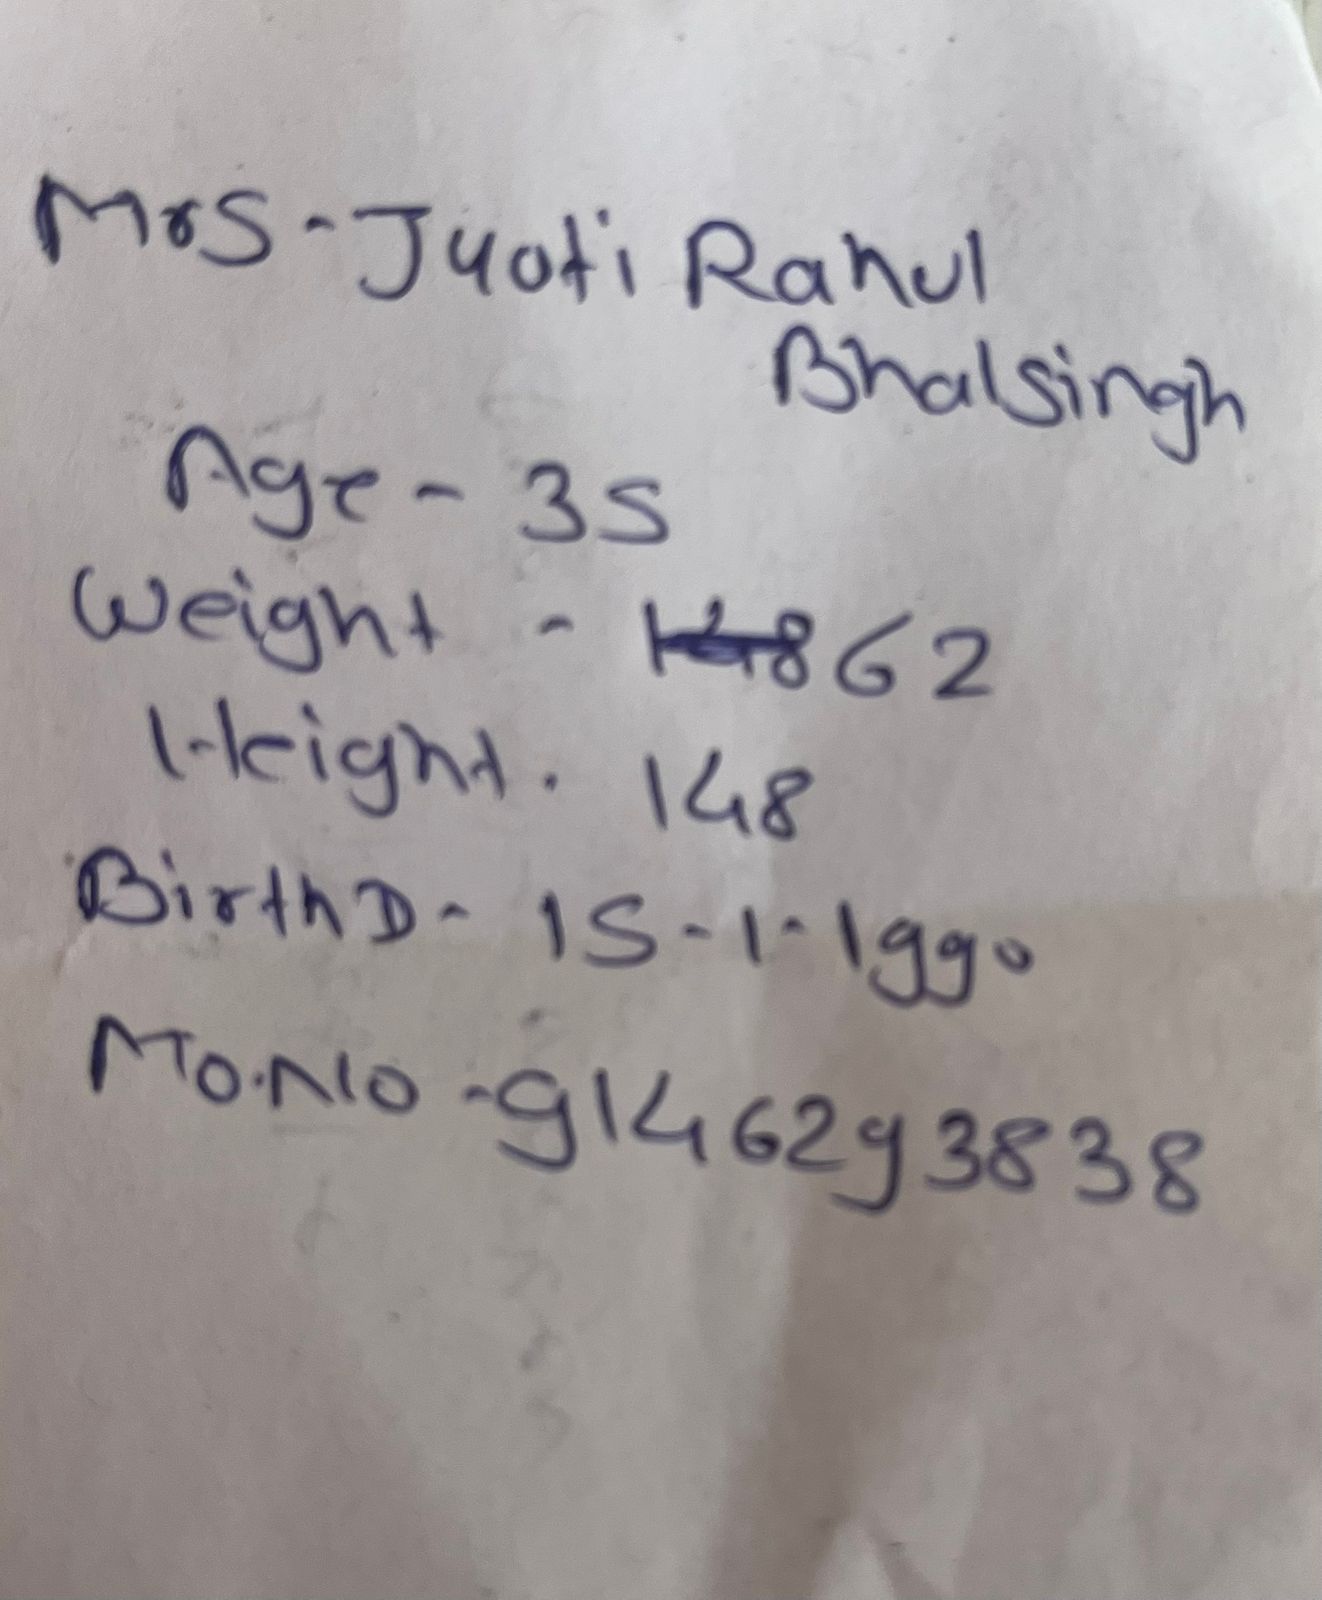 Mrs - Jyoti Rahul
Bhalsingh
Age - 35
Weight - 148 62
Height. 148
BirthD - 15-1-1990
Mo.No - 9146293838